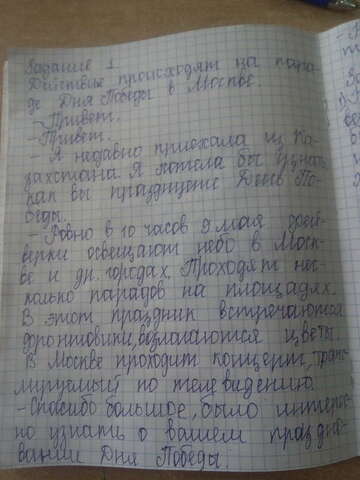 Задание 1
Действие происходят на пара-
де Дня Победы в Москве.
- Привет.
- Привет.
- Я недавно приехала из Ка-
захстана. Я хотела бы узнать
как вы празднуете День По-
беды.
- Ровно в 10 часов 9 мая фейе-
верки освещают небо в Моск-
ве и др. городах. Проходят нес-
колько парадов на площадях.
В этот праздник встречаются
фронтовики, возлагаются цветы.
В Москве проходит концерт, транс-
лируемый по телевидению.
- Спасибо большое, было интерес-
но узнать о вашем праздно-
вании Дня Победы.